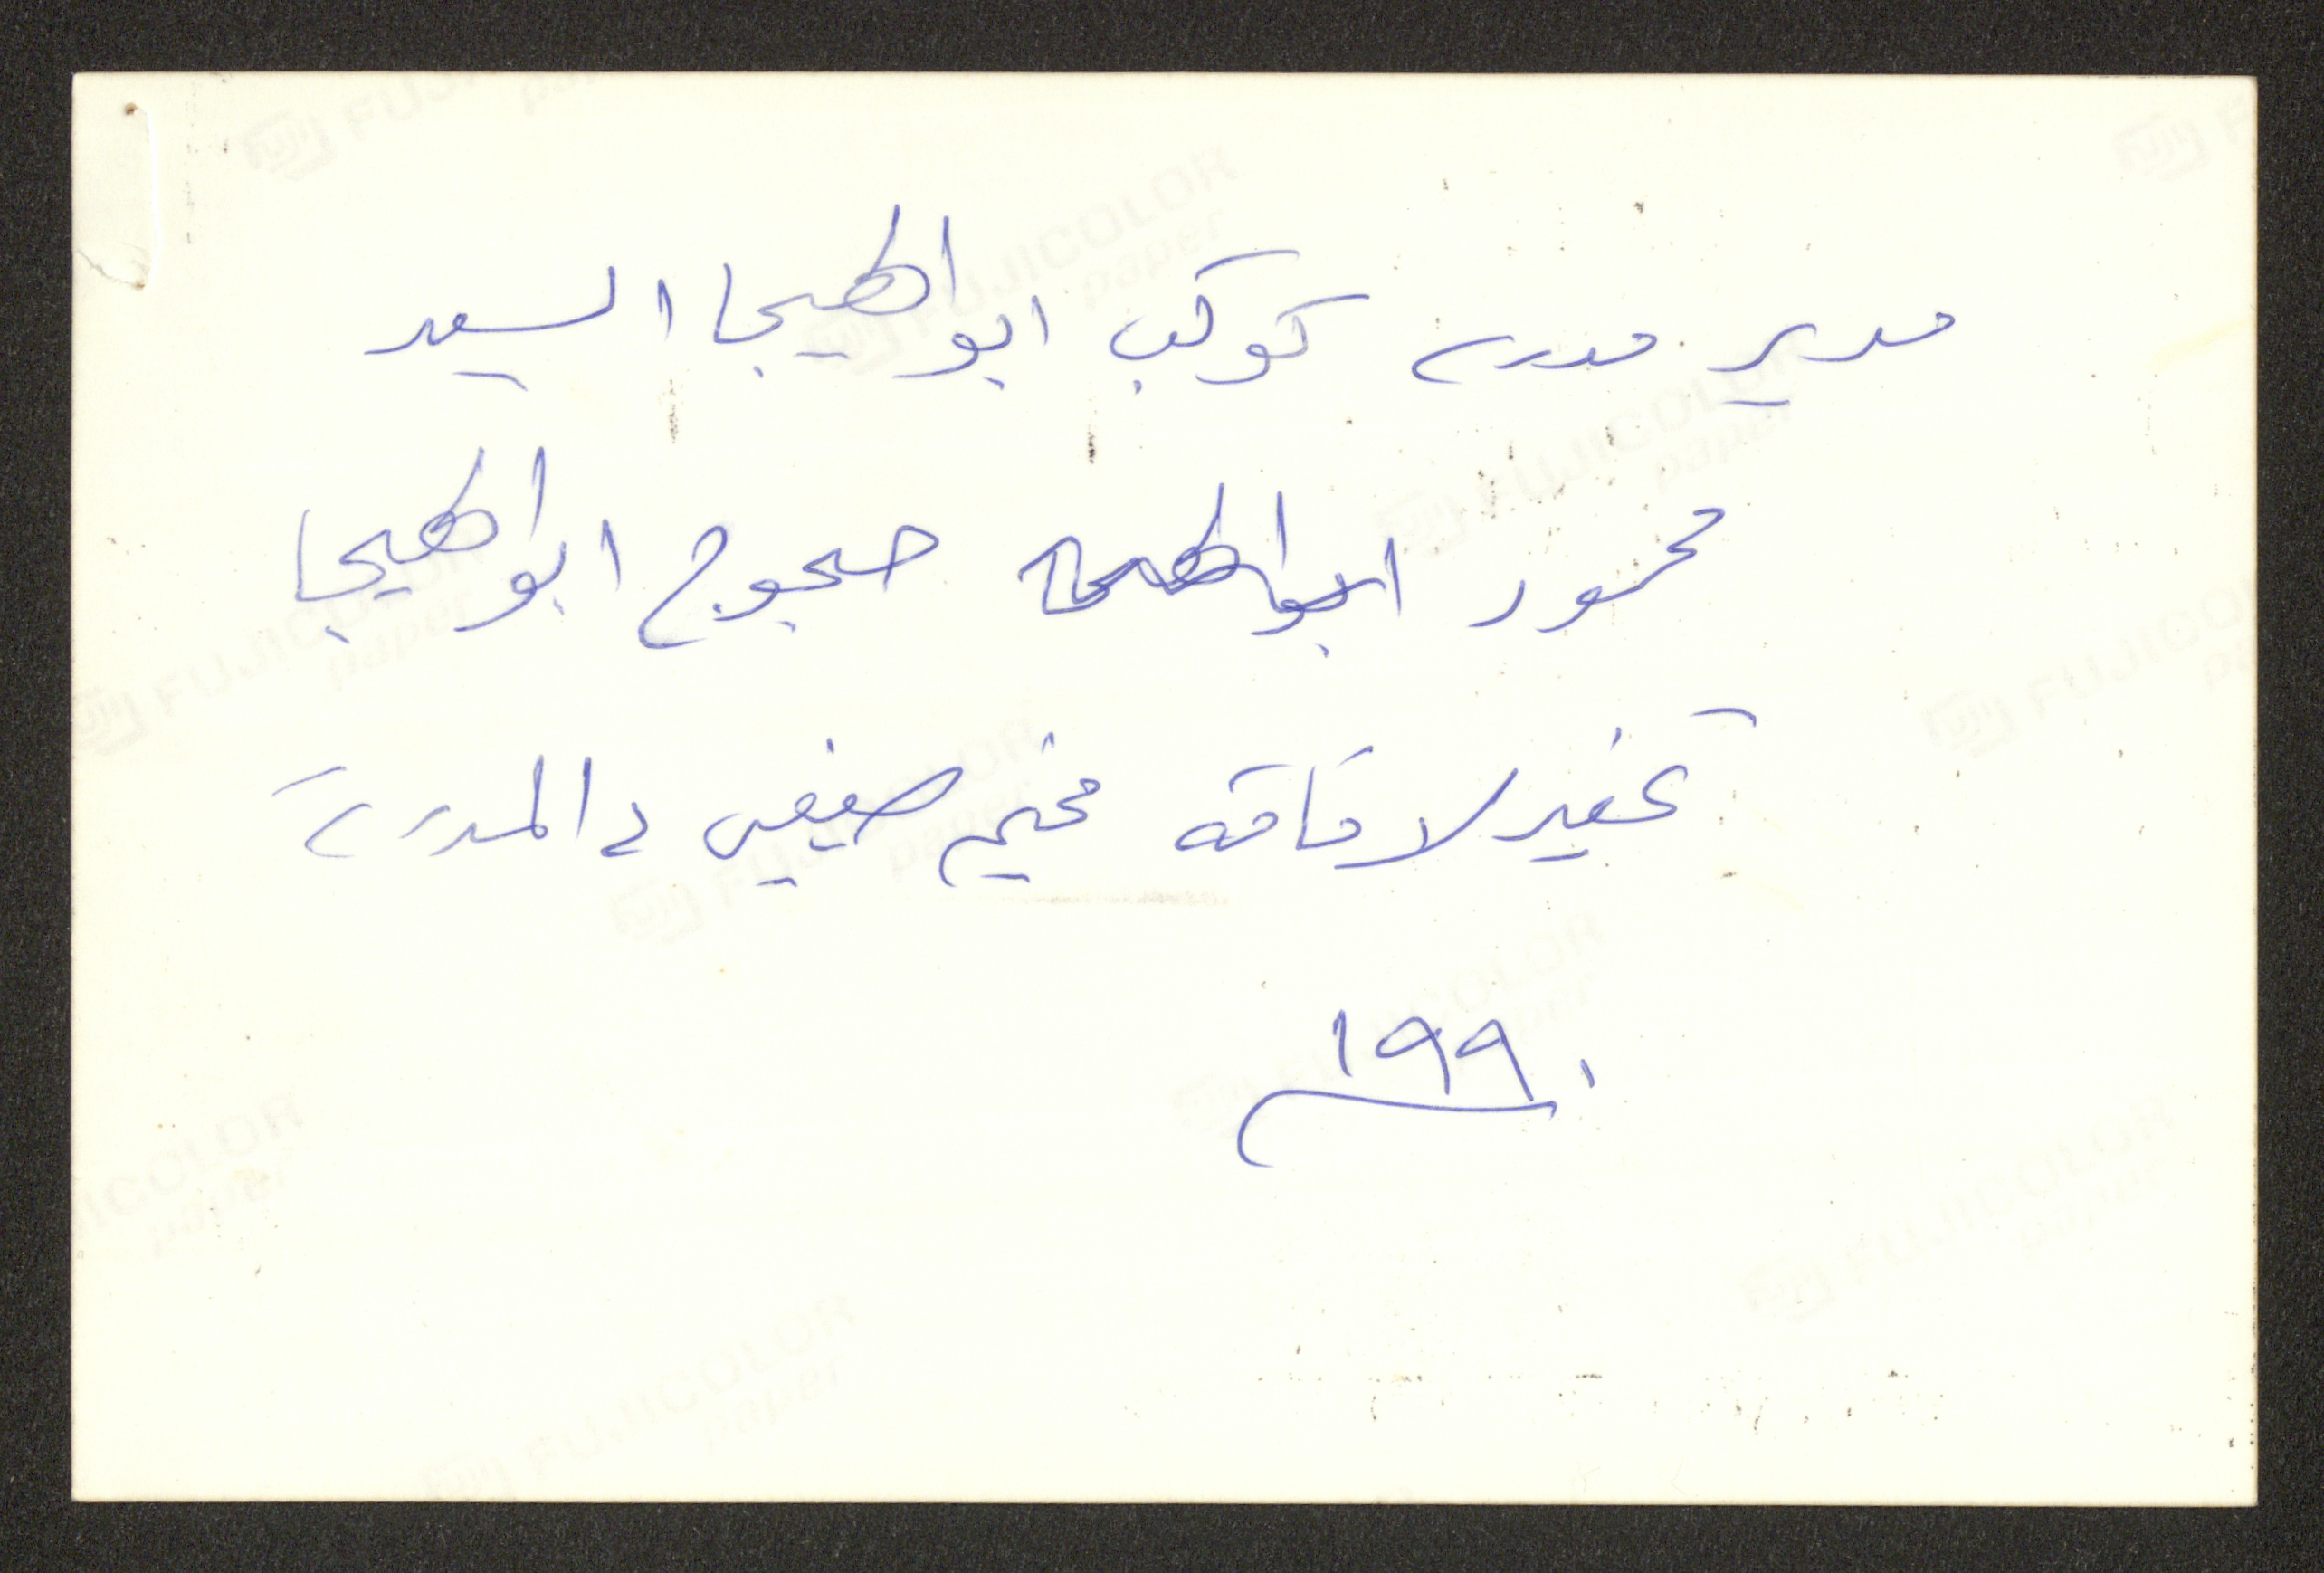 مدير مدرسة كوكب ابو الهيجا السيد
محمود حجوج ابو الهيجا
تحضير لاقامة مخيم صيفي في المدرسة
١٩٩٠
FUJICOLOR paper